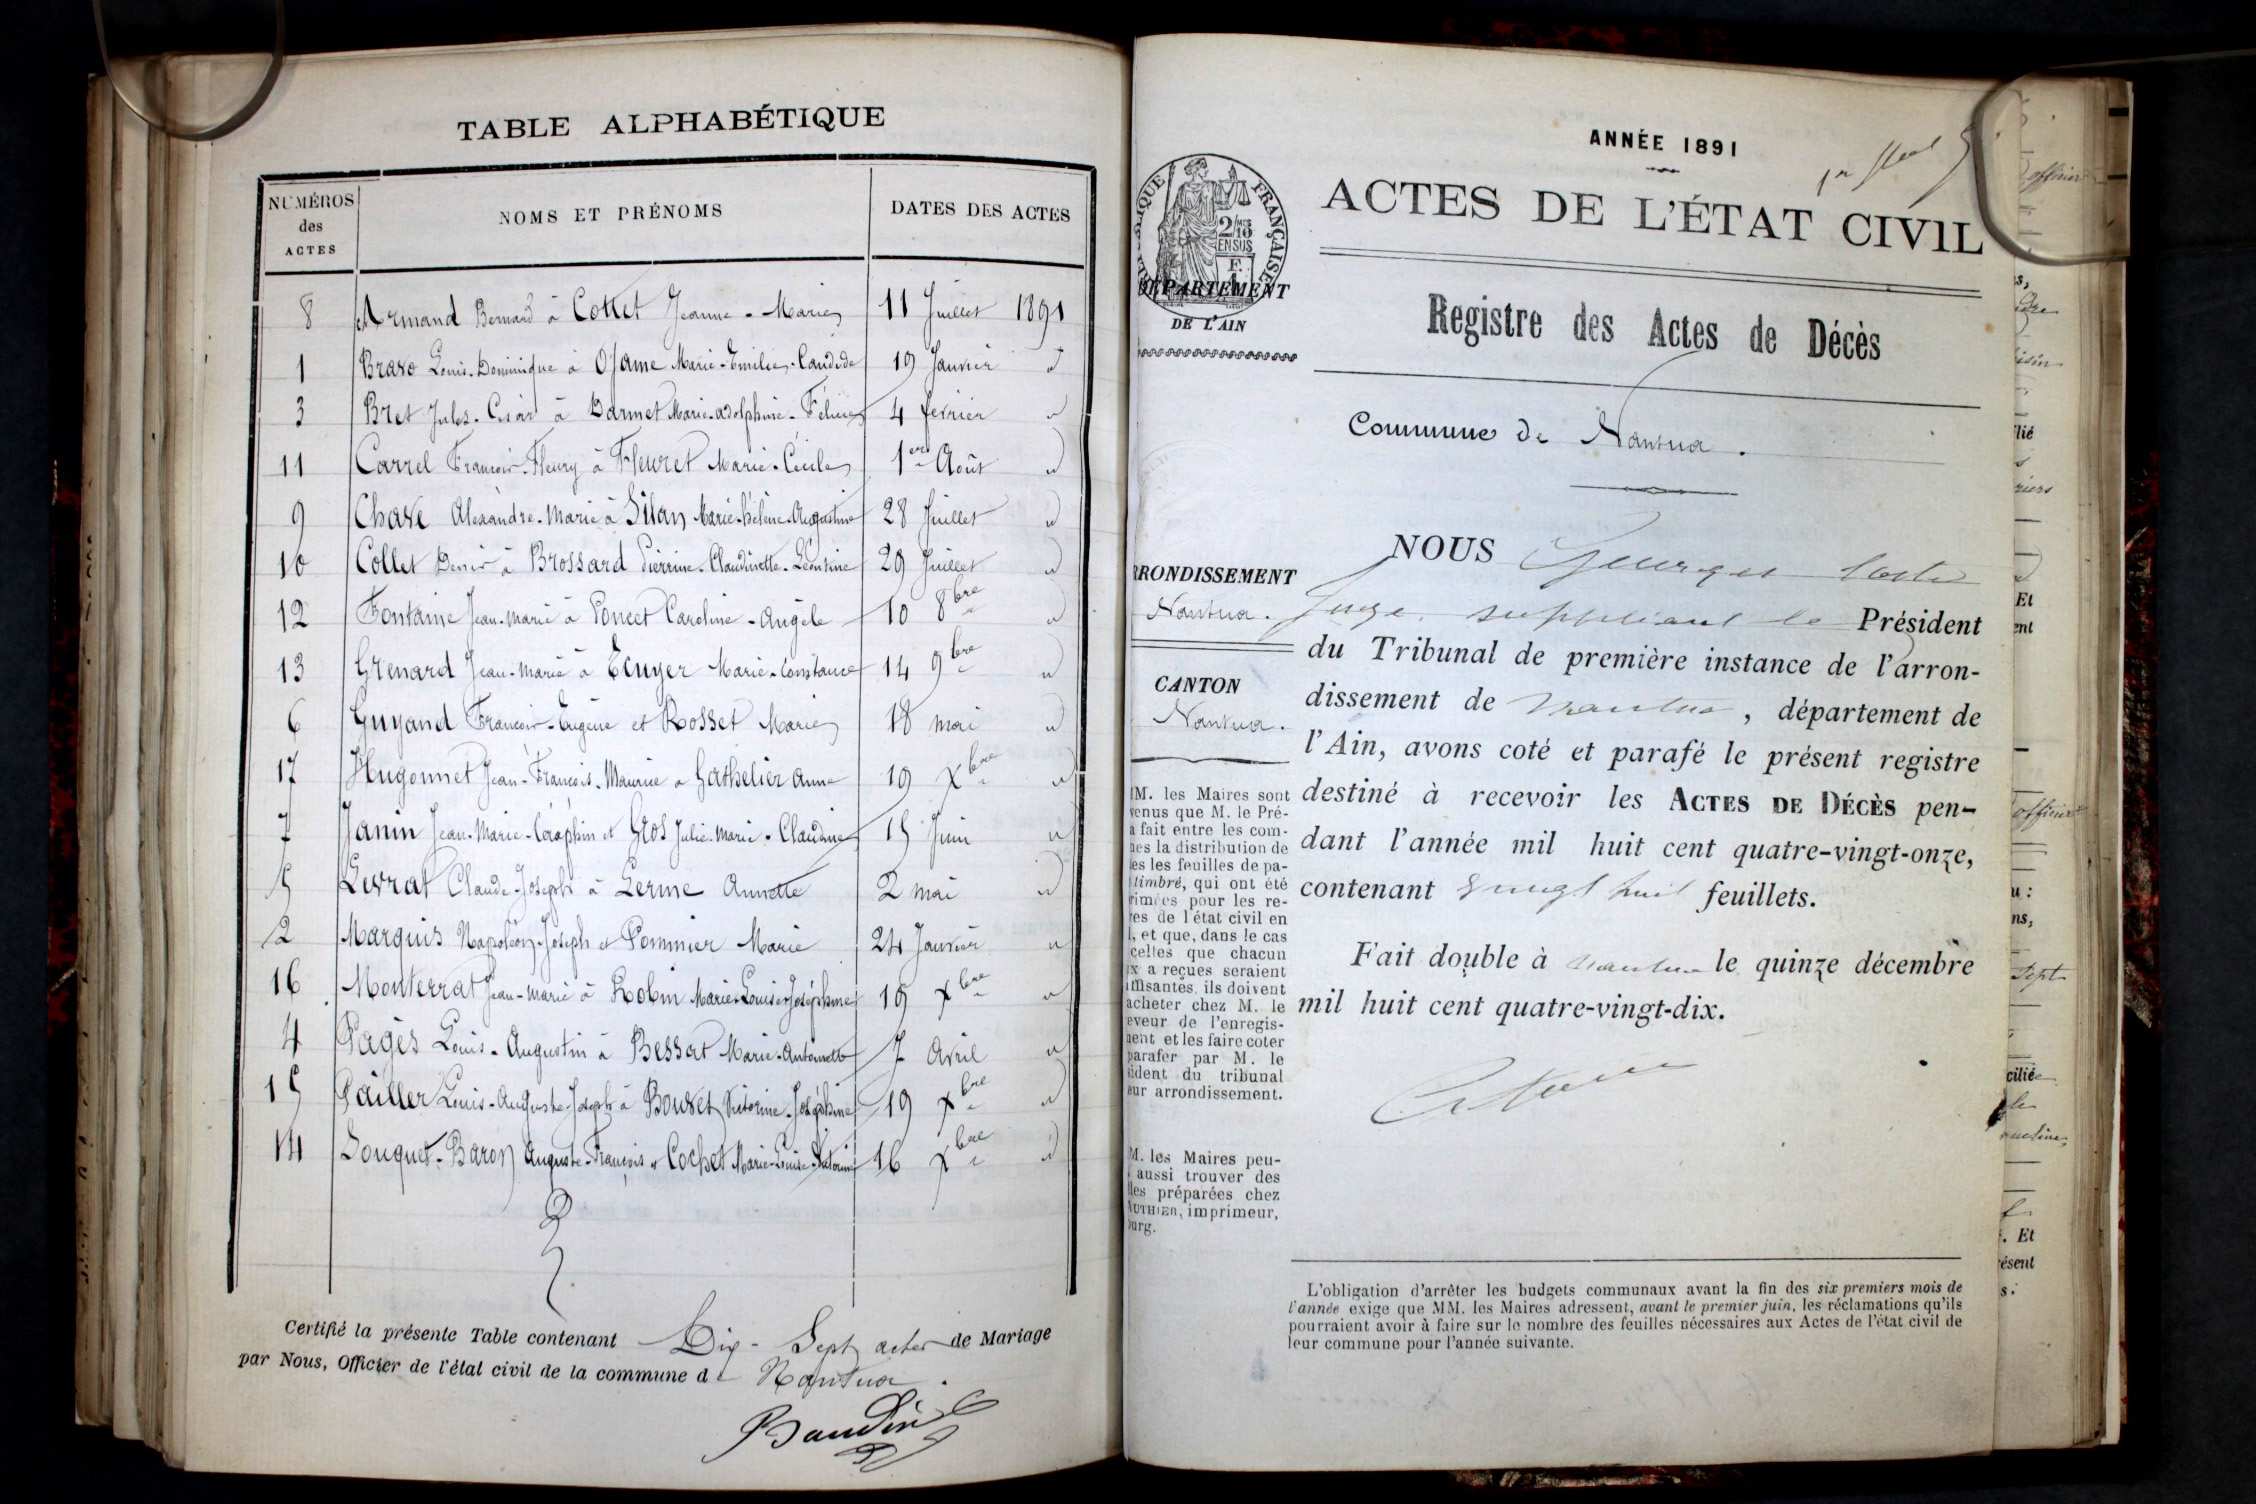 TABLE ALPHABÉTIQUE
NUMÉROS des ACTES
NOMS ET PRÉNOMS
DATES DES ACTES
8 Armand Bernard à Collet Jeanne-Marie 11 Juillet 1891
1 Bravo Louis-Dominique à Ojame Marie-Emilie-Candide 19 Janvier d
3 Bret Jules-César à Darmet Marie-Adolphine-Félicie 4 février d
11 Carrel François-Fleury à Fleuret Marie-Cécile 1er Août d
9 Chave Alexandre-Marie à Silan Marie-Hélène-Augustine 28 Juillet d
10 Collet Denis à Brossard Pierrine-Claudinette-Léontine 29 Juillet d
12 Fontaine Jean-Marie à Poncet Caroline-Angèle 10 8bre d
13 Grenard Jean-Marie à Ecuyer Marie-Constance 14 9bre d
6 Guyand François-Eugène et Rosset Marie 18 mai d
17 Hugonnet Jean-François-Maurice à Gathelier Anna 19 Xbre d
7 Janin Jean-Marie-Céraphin et Gros Julie-Marie-Claudine 15 Juin d
5 Levrat Claude-Joseph à Lerme Annette 2 mai d
2 Marquis Napoléon-Joseph et Pommier Marie 24 Janvier d
16 Monterrat Jean-Marie à Robin Marie-Louise-Joséphine 19 Xbre d
4 Pagès Louis-Augustin à Bessat Marie-Antoinette 7 Avril d
15 Pailler Louis-Auguste-Joseph à Bouvet Victorine-Joséphine 19 Xbre d
14 Souquet-Baron Auguste-François et Cochet Marie-Louise-Victorine 16 Xbre d
Certifié la présente Table contenant Dix-Sept actes de Mariage
par Nous, Officier de l'état civil de la commune de Nantua.
Baudin
ANNÉE 1891
RÉPUBLIQUE FRANÇAISE
2/10 EN SUS
DÉPARTEMENT
DE L'AIN
ACTES DE L'ÉTAT CIVIL
Registre des Actes de Décès
Commune de Nantua.
RRONDISSEMENT
Nantua.
CANTON
Nantua.
MM. les Maires sont
venus que M. le Pré-
a fait entre les com-
nes la distribution de
es les feuilles de pa-
timbré, qui ont été
rimées pour les re-
res de l'état civil en
l, et que, dans le cas
celles que chacun
x a reçues seraient
ffisantes, ils doivent
acheter chez M. le
eveur de l'enregis-
ment et les faire coter
parafer par M. le
sident du tribunal
eur arrondissement.
M. les Maires peu-
aussi trouver des
lles préparées chez
AUTHIER, imprimeur,
ourg.
NOUS Georges
Juge suppléant le Président
du Tribunal de première instance de l'arron-
dissement de Nantua, département de
l'Ain, avons coté et parafé le présent registre
destiné à recevoir les ACTES DE DÉCÈS pen-
dant l'année mil huit cent quatre-vingt-onze,
contenant vingt huit feuillets.
Fait double à Nantua le quinze décembre
mil huit cent quatre-vingt-dix.
L'obligation d'arrêter les budgets communaux avant la fin des six premiers mois de
l'année exige que MM. les Maires adressent, avant le premier juin, les réclamations qu'ils
pourraient avoir à faire sur le nombre des feuilles nécessaires aux Actes de l'état civil de
leur commune pour l'année suivante.